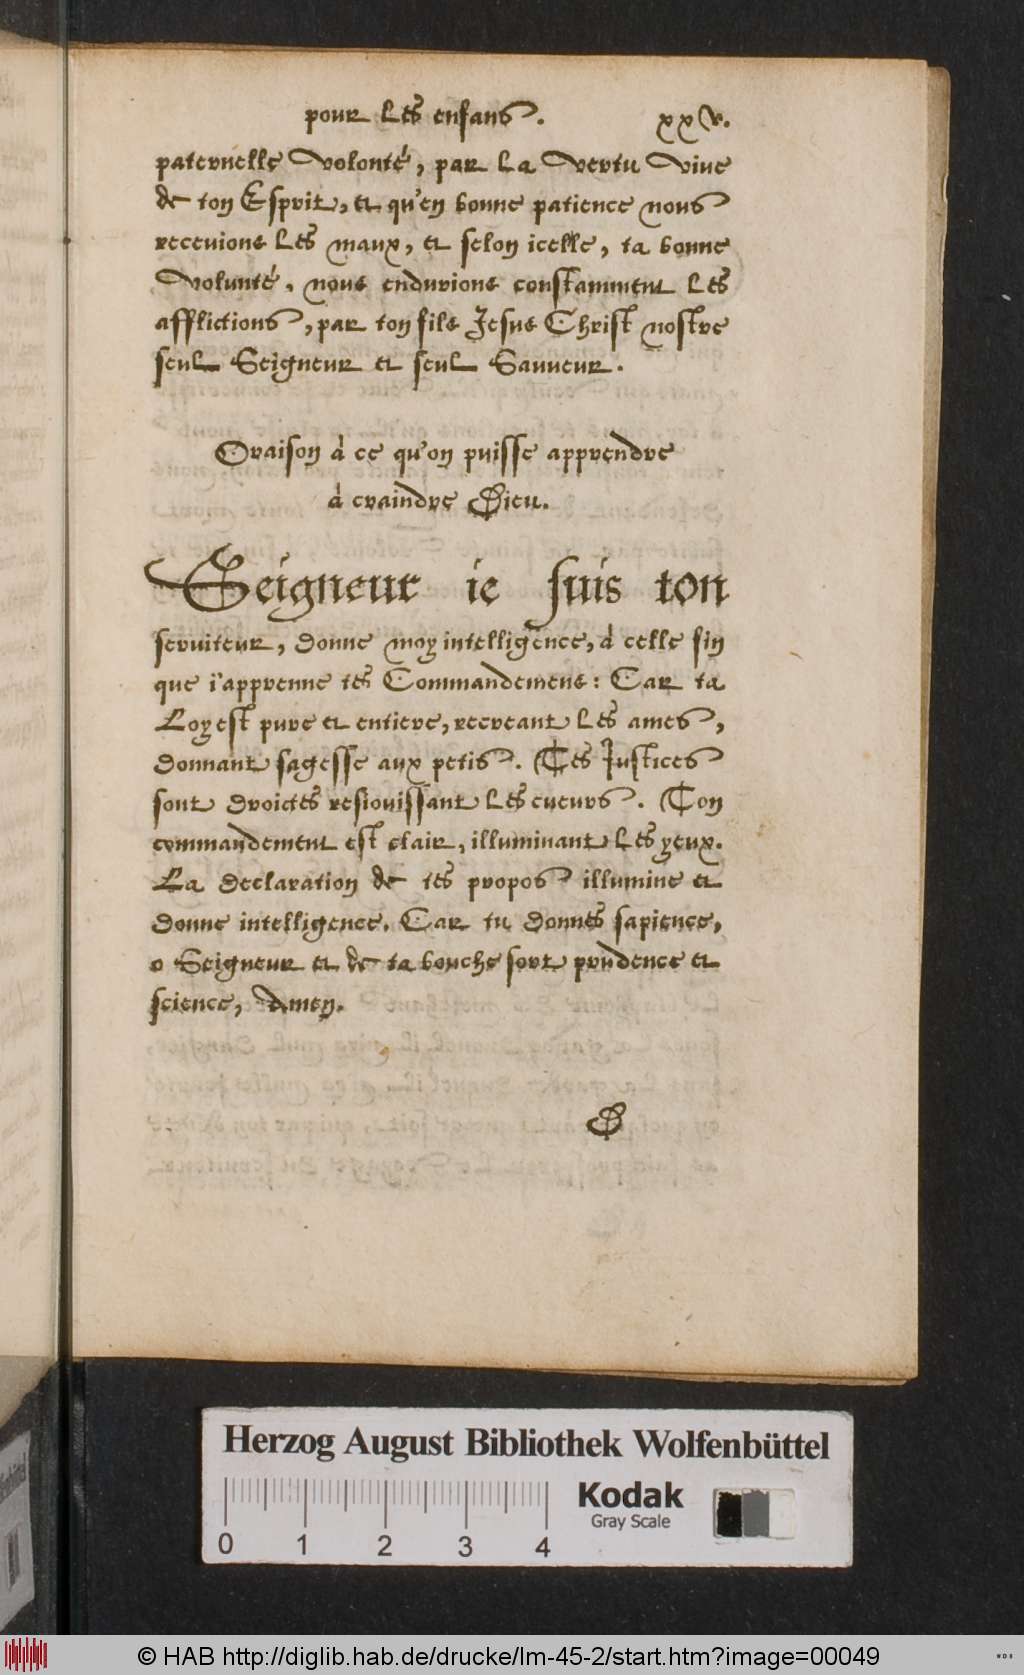 pour les enfans. xxv.
paternelle volonté, par la vertu vive
de ton Esprit, et qu'en bonne patience nous
recevions les maux, et selon icelle, ta bonne
volunté, nous endurions constamment les
afflictions, par ton filz Jesus Christ nostre
seul Seigneur et seul Sauveur.
Oraison à ce qu'on puisse apprendre
à craindre Dieu.
Seigneur ie suis ton
serviteur, donne moy intelligence, à celle fin
que i'apprenne tes Commandemens: Car ta
Loy est pure et entiere, recreant les ames,
donnant sagesse aux petis. Tes Justices
sont droictes resiouissant les cueurs. Ton
commandement est clair, illuminant les yeux.
La declaration de tes propos illumine et
donne intelligence. Car tu donnes sapience,
o Seigneur et de ta bouche sort prudence et
science, Amen.
D
Herzog August Bibliothek Wolfenbüttel
Kodak
Gray Scale
0 1 2 3 4
© HAB http://diglib.hab.de/drucke/lm-45-2/start.htm?image=00049